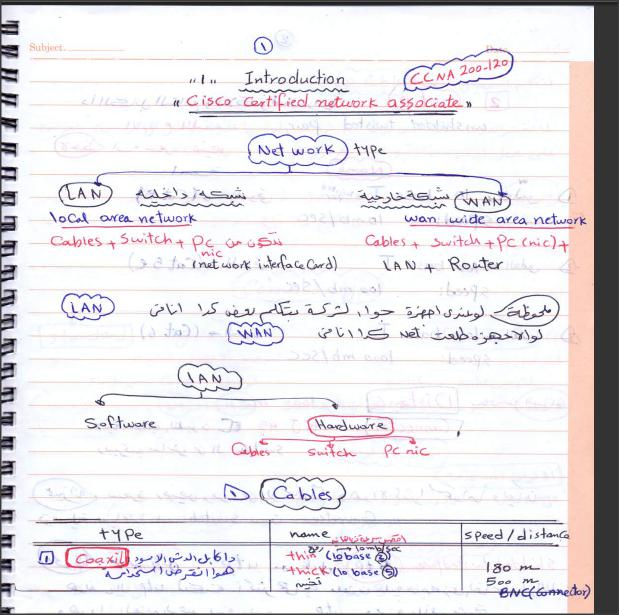 Subject.
1
"1" Introduction
CCNA 200-120
"Cisco Certified network associate"
Network type
LAN شبكة داخلية
شبكة خارجية WAN
local area network
wan wide area network
Cables + Switch + Pc تتكون من
nic
(network interface Card)
Cables + Switch + PC (nic) +
LAN + Router
ملحوظة لو عندى اجهزة جوا الشركة بتكلم بعض كدا انا فى LAN
لو الاجهزة طلعت net كدا انا فى WAN
LAN
Software
Hardware
Cables Switch Pc nic
1 Cables
type name speed / distance
10 mb/sec
1 Coaxil دا كابل الدش الاسود
thin (10 base 2)
180 m
هوا انقرض استخدامه
thick (10 base 5)
500 m
تخين
BNC (Connector)